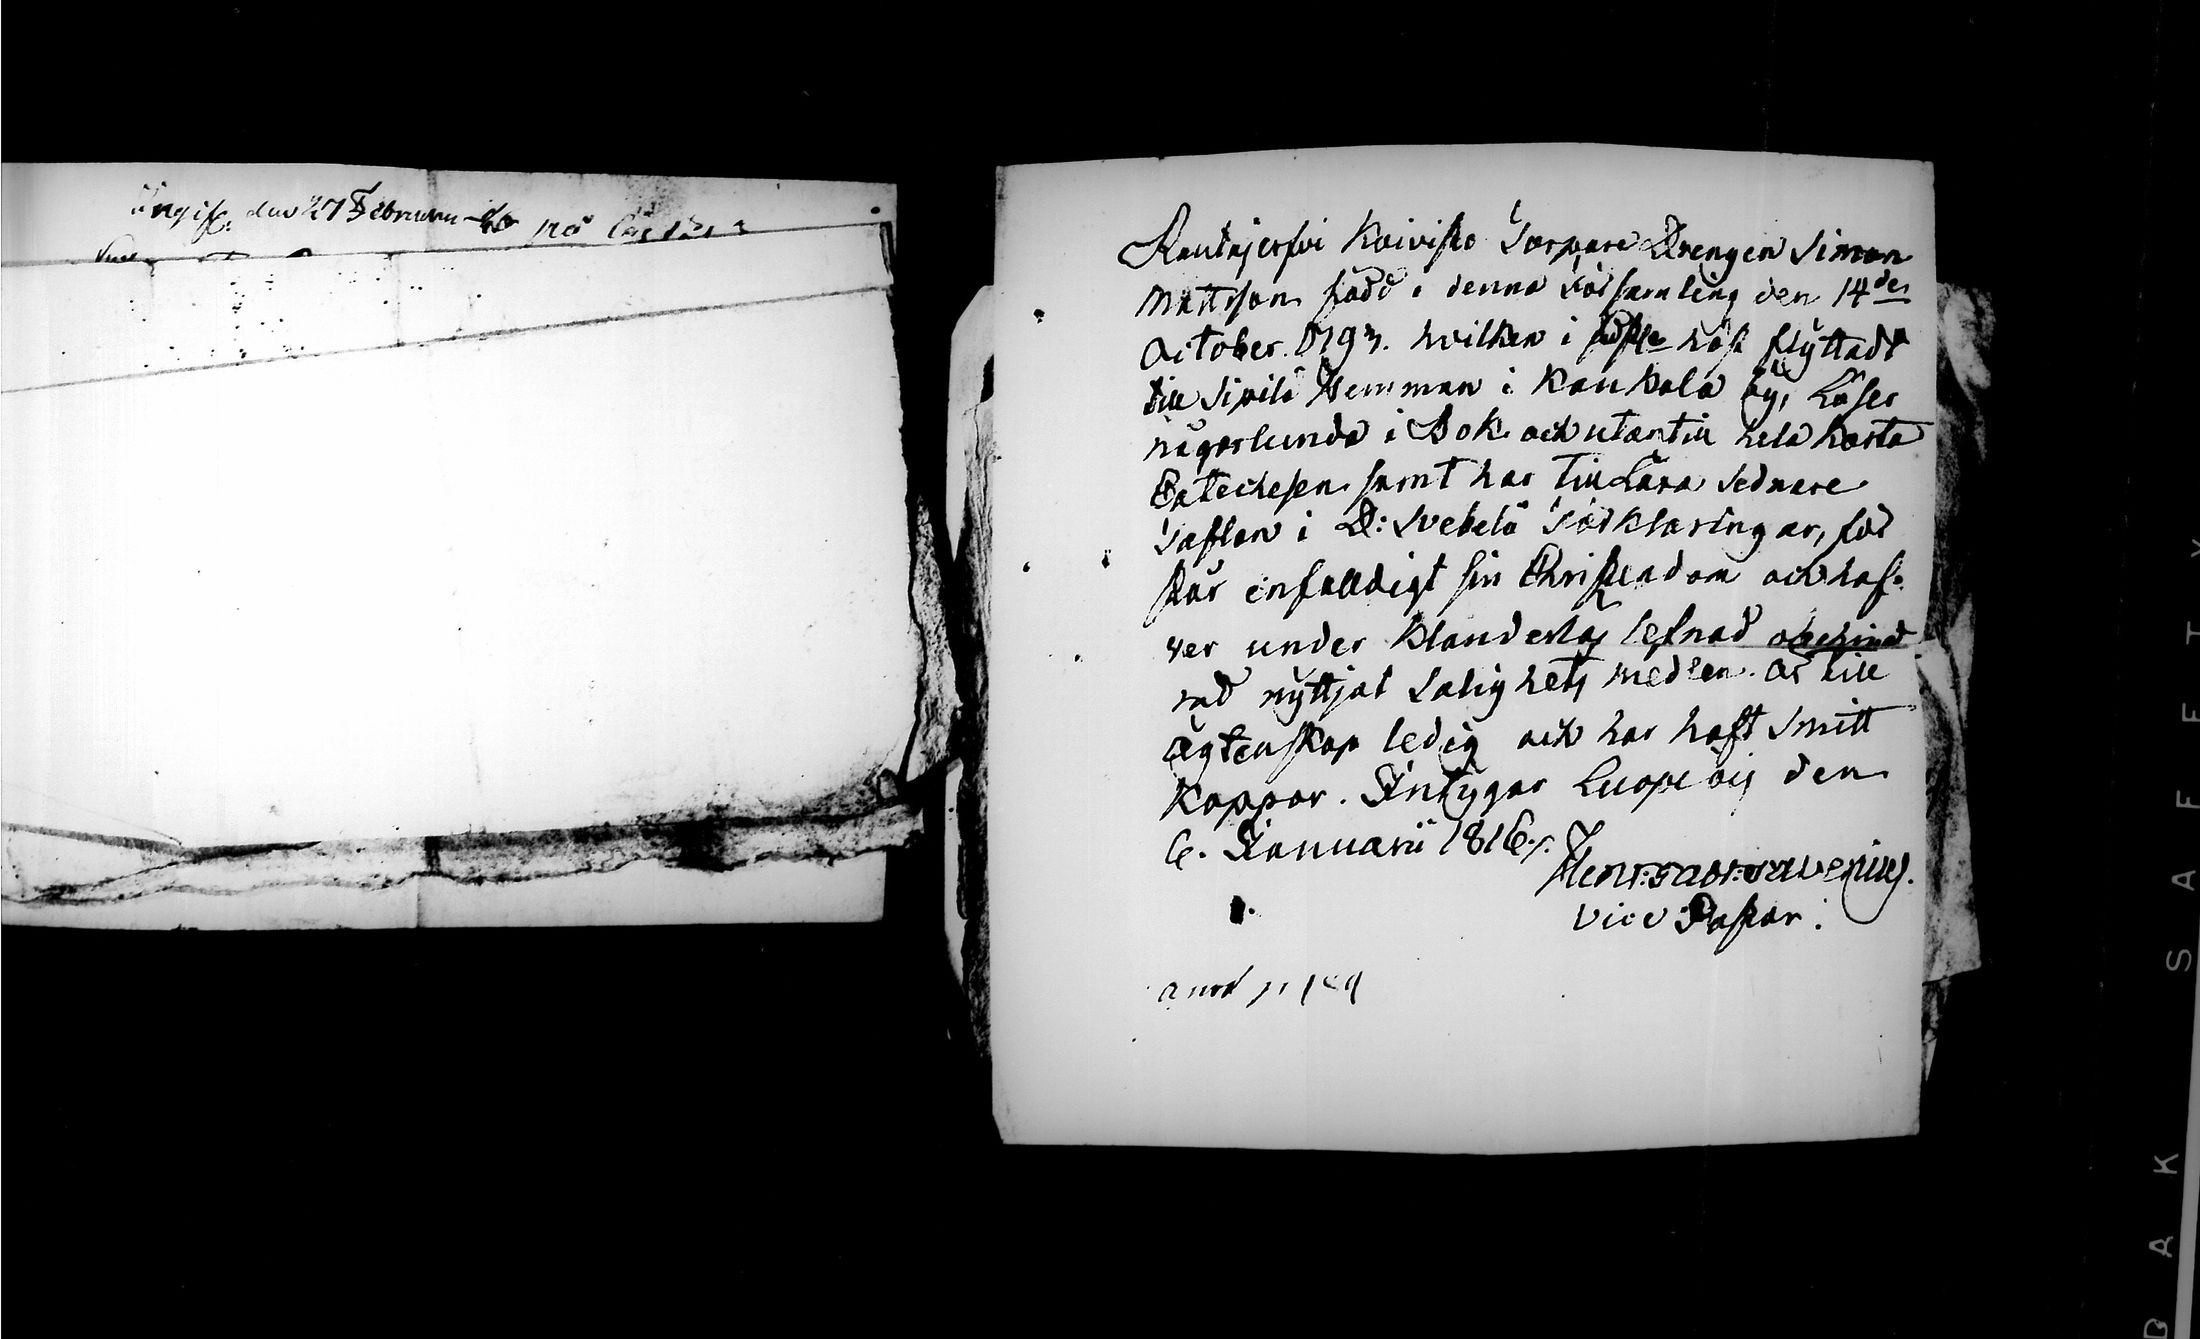 Ingift. den 27 Februarii på
Rautajerfvi Koivisto Torpare Drengen Simon
Mattsson född i denna Församling den 14de
October 1793. hvilken i höst flyttadt
till Sipilä Hemman i Kaukola by, Läser
någorlunda i Bok och utantill hela korta
Catechesen samt har till Lära sednare
Taflan i D: Svebelii Förklaringar, för
står enfalldigt sin Christendom och haf-
ver under klanderlös lefnad obehind
rad nyttjat Salighets medlen. Är till
Ägtenskap ledig och har haft Smitt
Koppor. Intygar Luopiois den
6. Januarii 1816.
Vice Pastor.
SAFETY